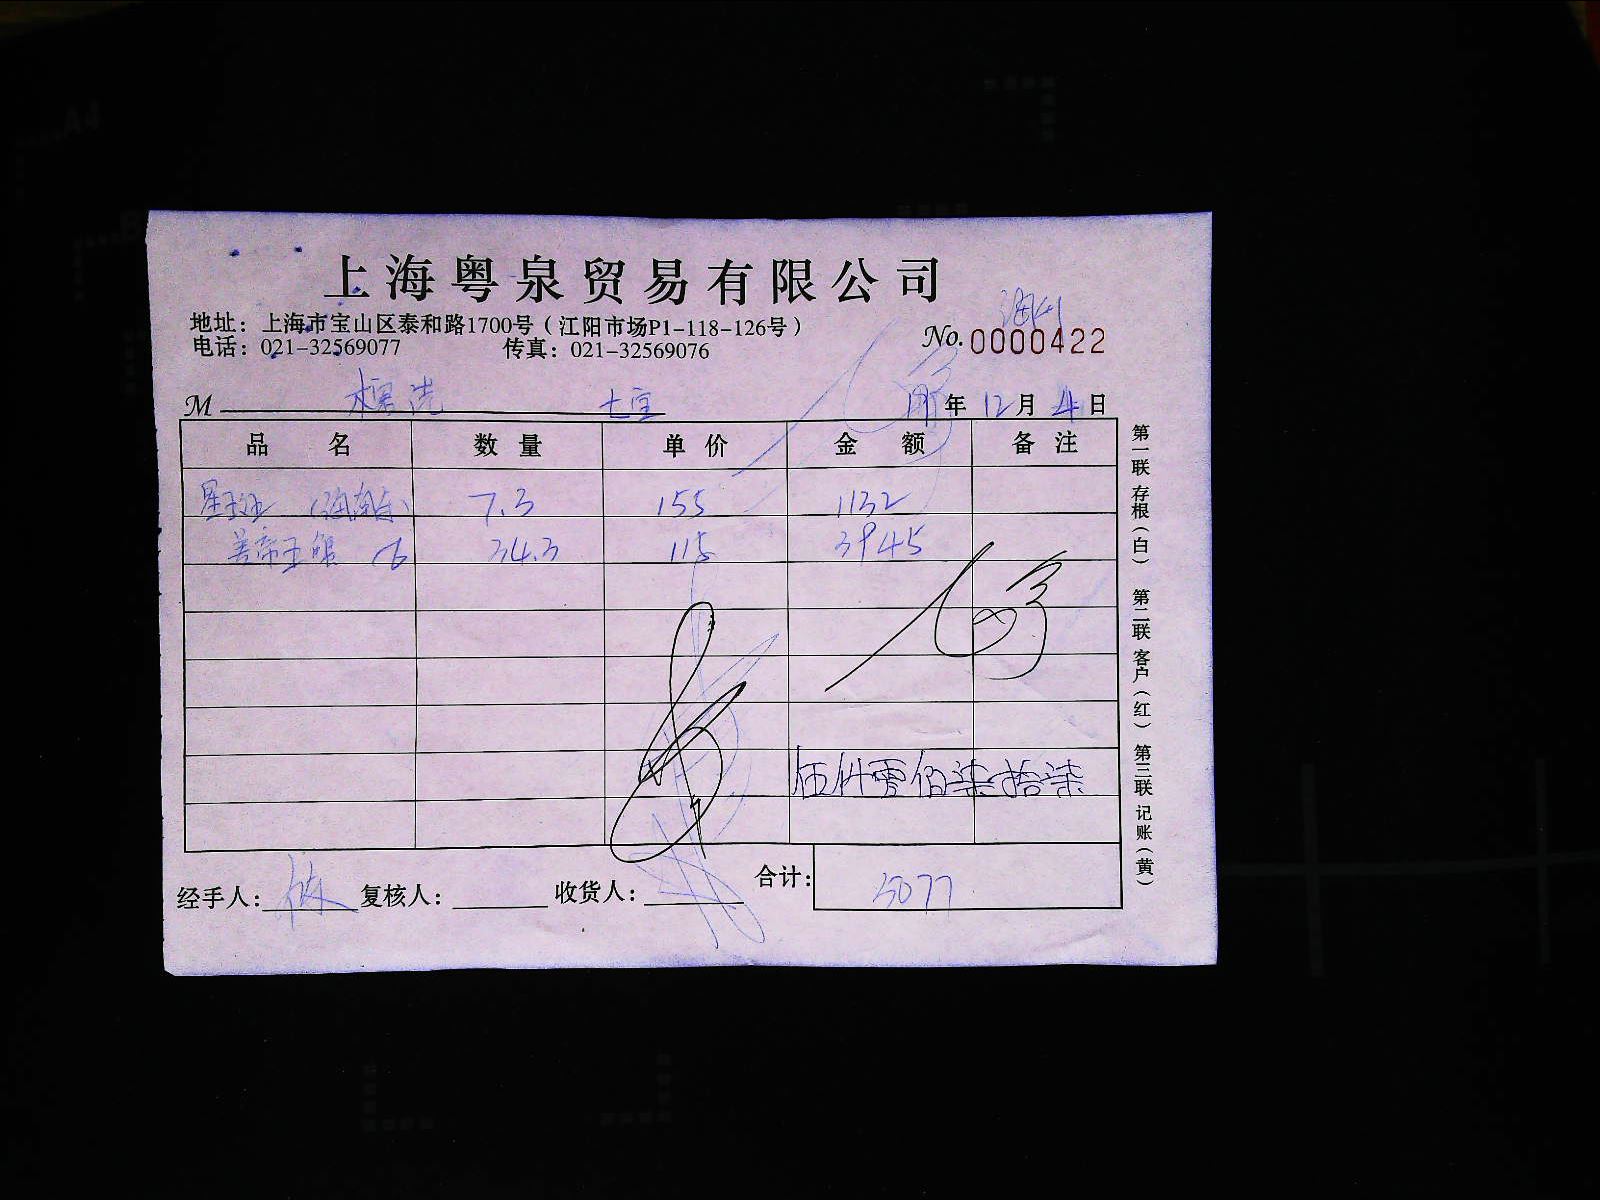 上海粤泉贸易有限公司
地址：上海市宝山区泰和路1700号（江阳市场P1-118-126号）
电话：021-32569077 传真：021-32569076
No. 0000422
M 七宝 年 12月 4日
品 名 数量 单价 金 额 备注
星斑 7.3 155 1132
美帝王 34.3 115 3945
伍仟零佰柒拾柒
合计：5077
经手人： 复核人： 收货人：
第一联 存根（白） 第二联 客户（红） 第三联 记账（黄）